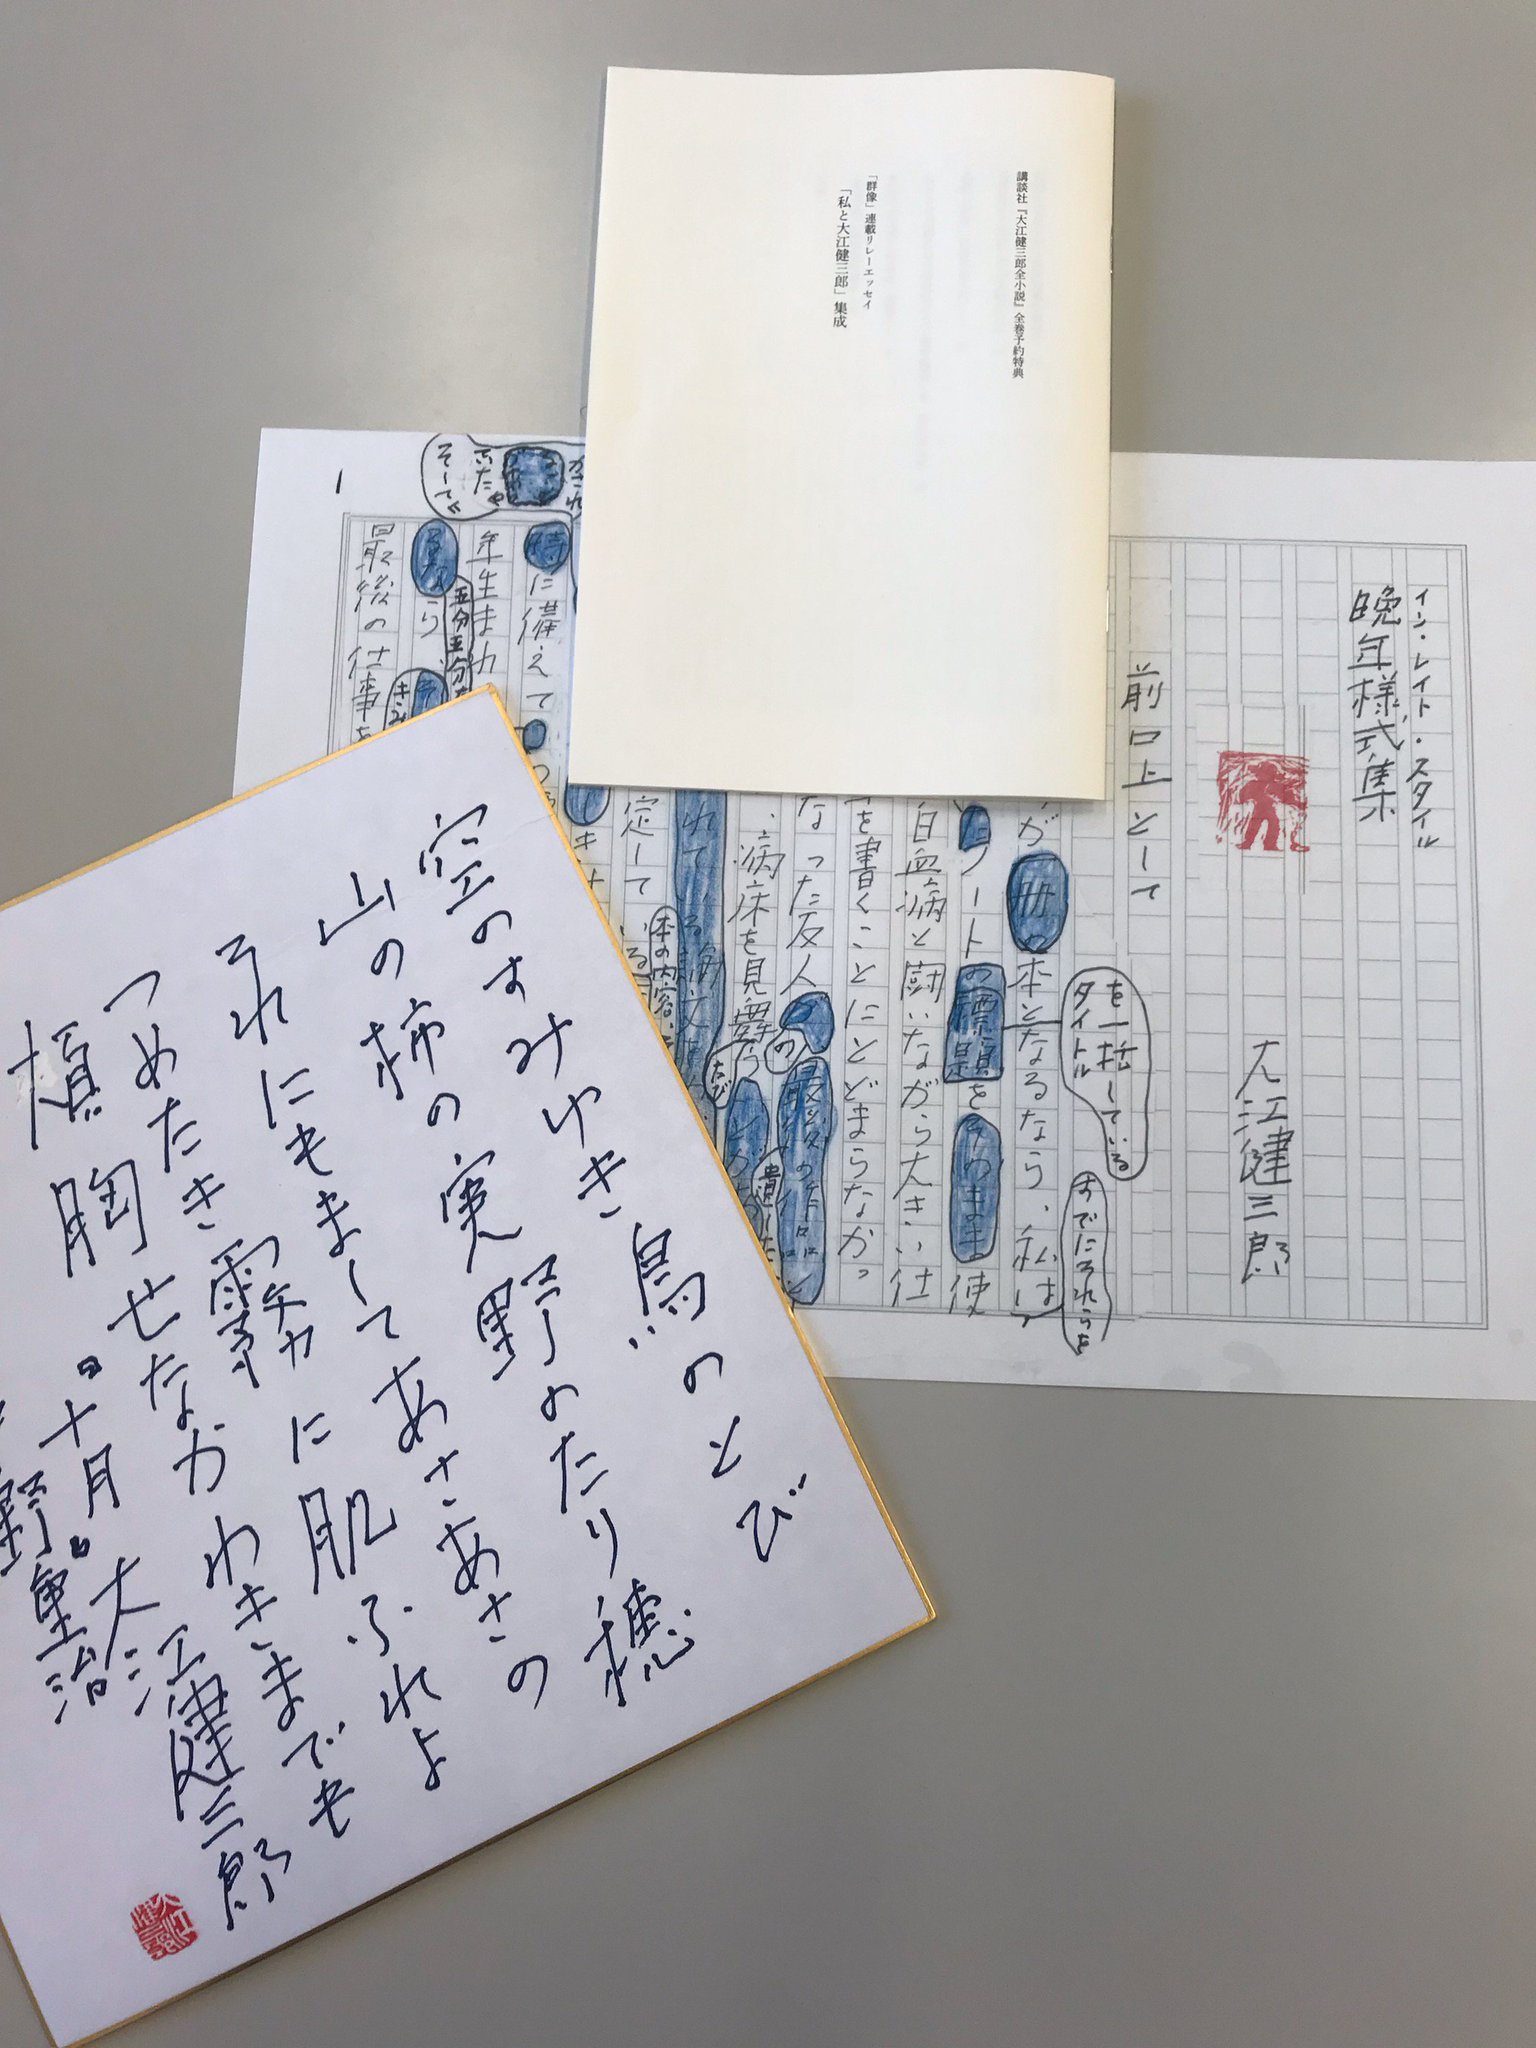 講談社『大江健三郎全小説』全巻予約特典
「群像」連載リレーエッセイ
「私と大江健三郎」集成
イン・レイト・スタイル
晩年様式集
大江健三郎
前口上として
すでにそれらを
を一括している
タイトル
が 冊の本となるなら、私は
ノートの標題をそのまま使
白血病と闘いながら大きい仕
を書くことにとどまらなかっ
なった友人の
、病床を見舞う
たび
本の内容、
定して
時に備えて
年生まれ
五分五分
なら
最後の仕事を
そして
1
空のすみゆき鳥のとび
山の柿の実野のたり穂
それにもましてあさあさの
つめたき霧に肌ふれよ
頬胸せなかわきまでも
十月 大江健三郎
野重治